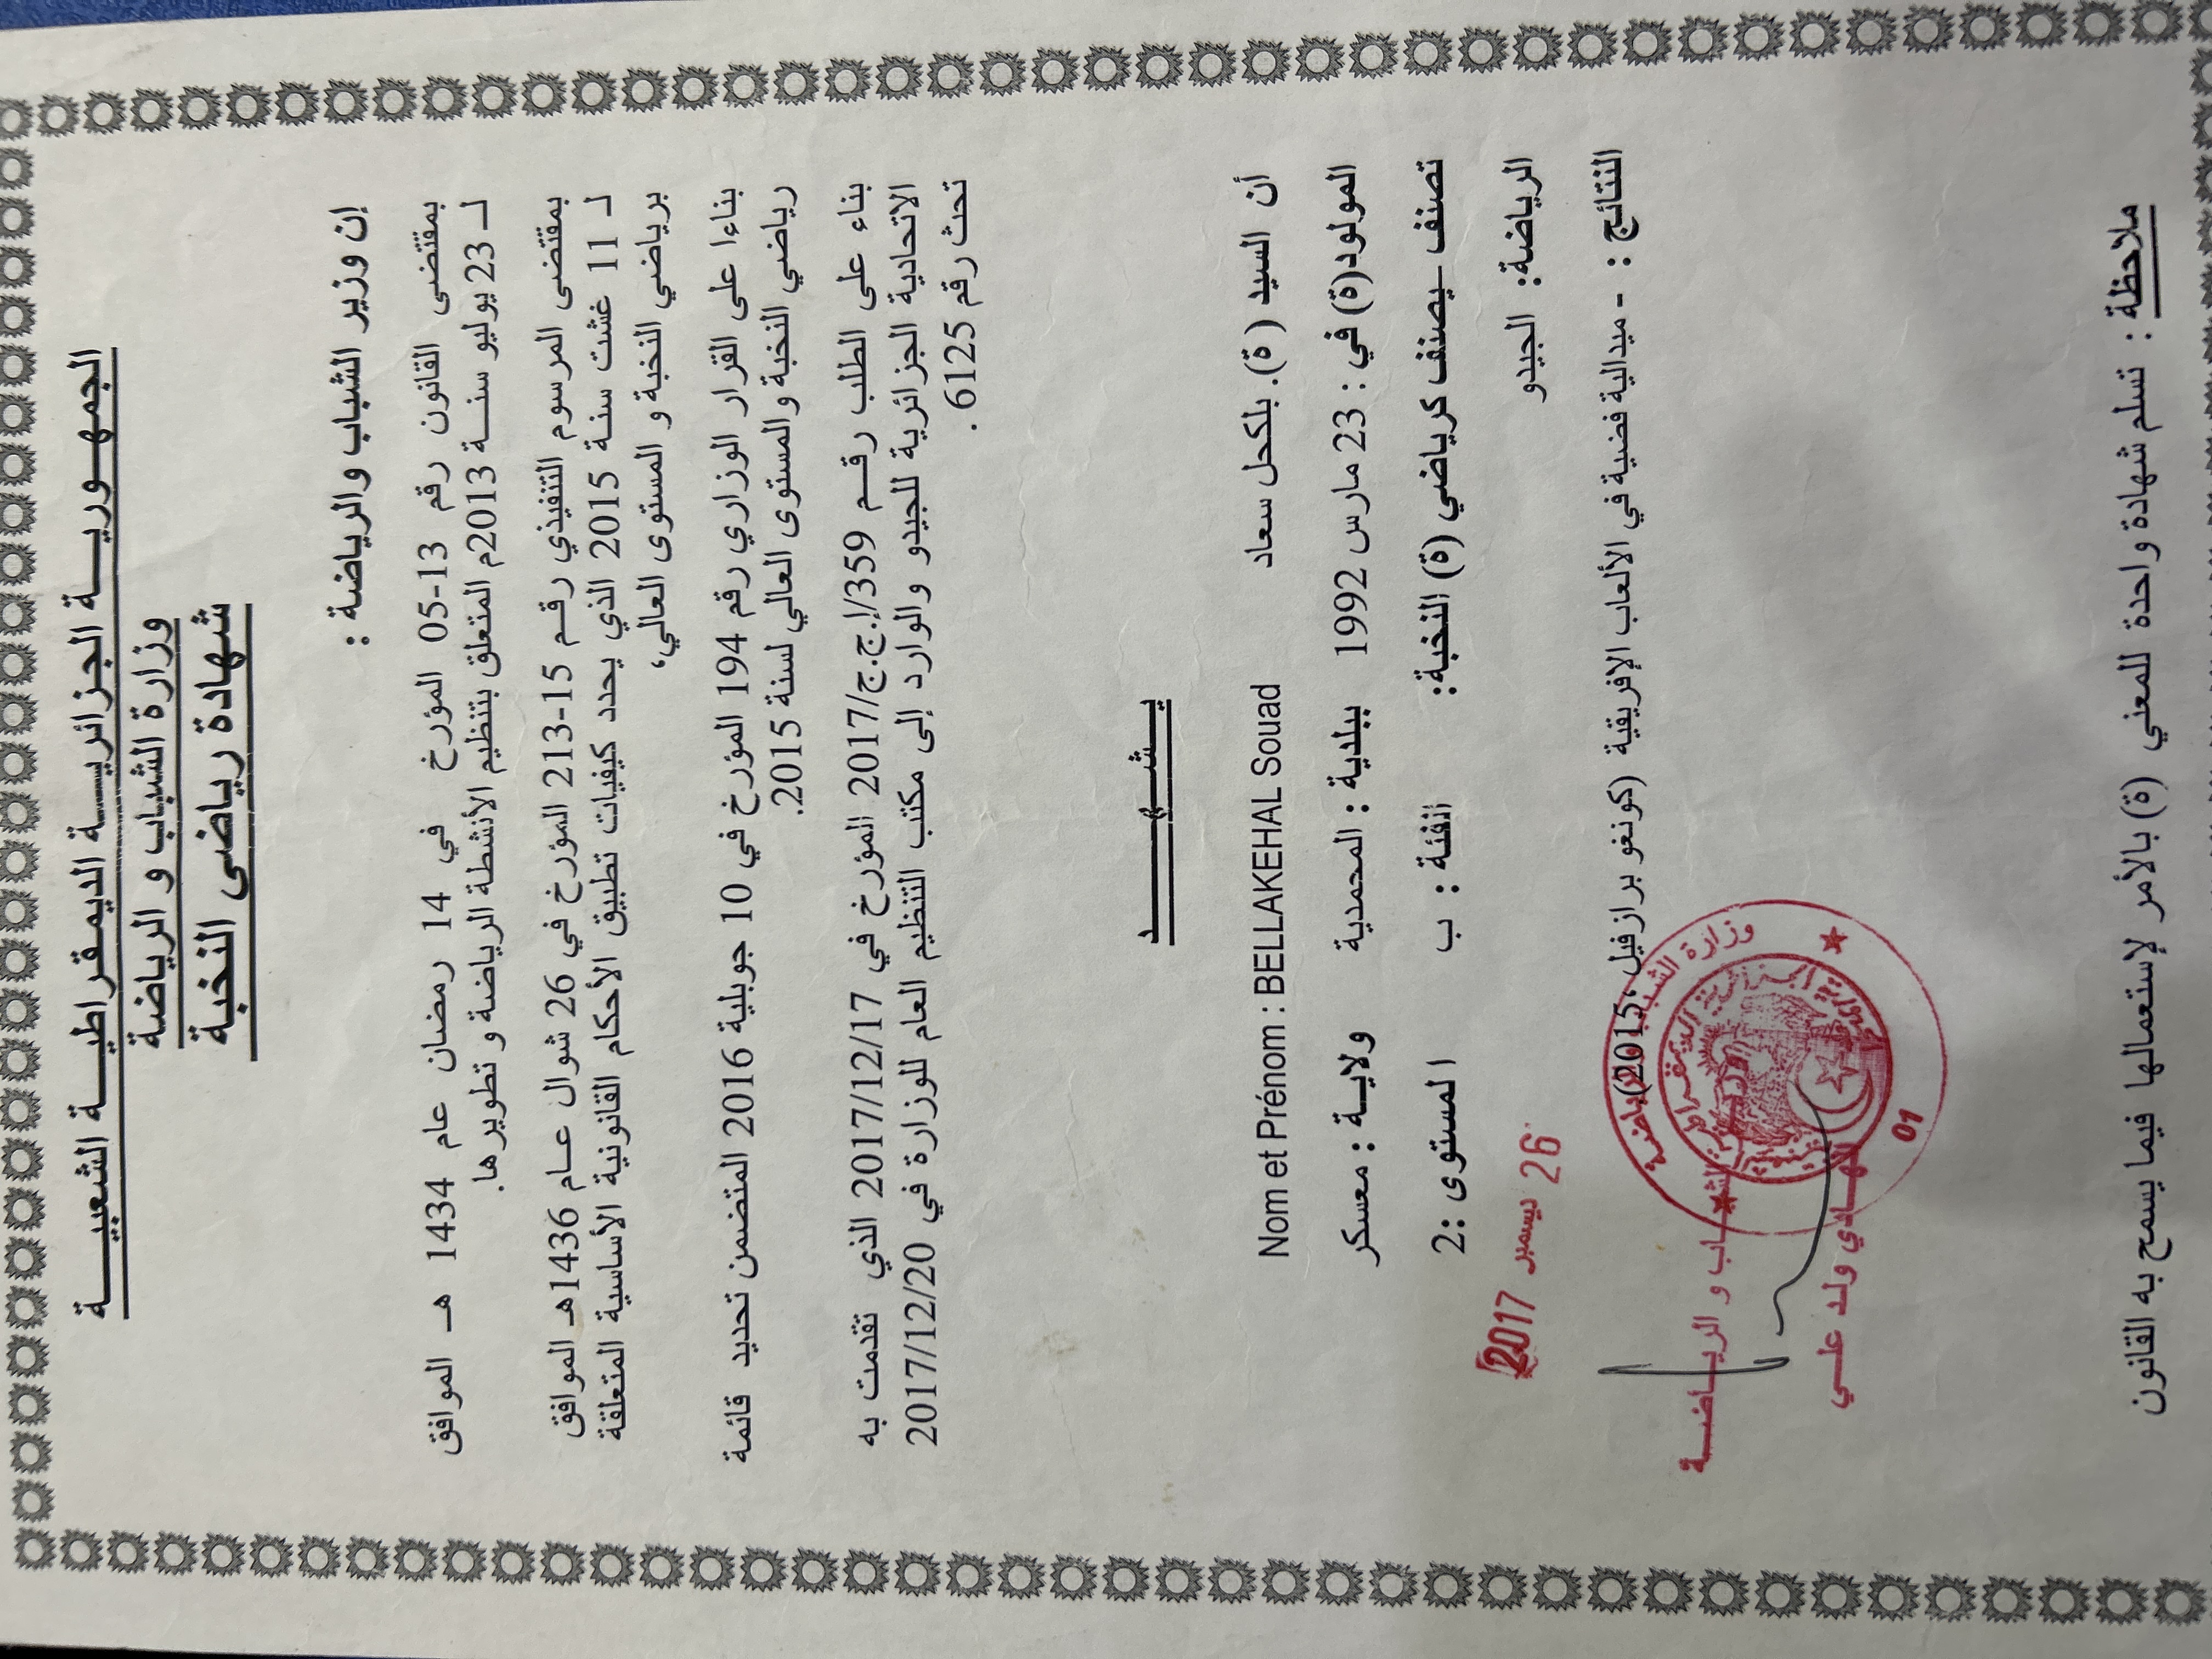 الجمهوريـــة الجزائريـــة الديمقراطيـــة الشعبيـــة
وزارة الشباب و الرياضة
شهادة رياضي النخبة
إن وزير الشباب والرياضة :
بمقتضى القانون رقم 13-05 المؤرخ في 14 رمضان عام 1434 هـ الموافق
لـ 23 يوليو سنـة 2013م المتعلق بتنظيم الأنشطة الرياضة و تطويرها.
بمقتضى المرسوم التنفيذي رقـم 15-213 المؤرخ في 26 شوال عـام 1436هـ الموافق
لـ 11 غشت سنة 2015 الذي يحدد كيفيات تطبيق الأحكام القانونية الأساسية المتعلقة
برياضي النخبة و المستوى العالي،
بناءا على القرار الوزاري رقم 194 المؤرخ في 10 جويلية 2016 المتضمن تحديد قائمة
رياضي النخبة والمستوى العالي لسنة 2015.
بناء على الطلب رقـم 359/إ.ج.ج/2017 المؤرخ في 2017/12/17 الذي تقدمت به
الاتحادية الجزائرية للجيدو والوارد إلى مكتب التنظيم العام للوزارة في 2017/12/20
تحث رقم 6125 .
يـــشـــهـــد
أن السيد (ة). بلكحل سعاد Nom et Prénom : BELLAKEHAL Souad
المولود(ة) في : 23 مارس 1992 ببلدية : المحمدية ولايـة : معسكر
تصنف ـ يصنف كرياضي (ة) النخبة: الفئة : ب المستوى :2
الرياضة: الجيدو
26 ديسمبر 2017
النتائج : - ميدالية فضية في الألعاب الإفريقية (كونغو برازفيل 2015).
وزارة الشباب والرياضة
01
الشبـــاب و الريـــاضـــة
الهـادي ولد علـي
ملاحظة : تسلم شهادة واحدة للمعني (ة) بالأمر لإستعمالها فيما يسمح به القانون